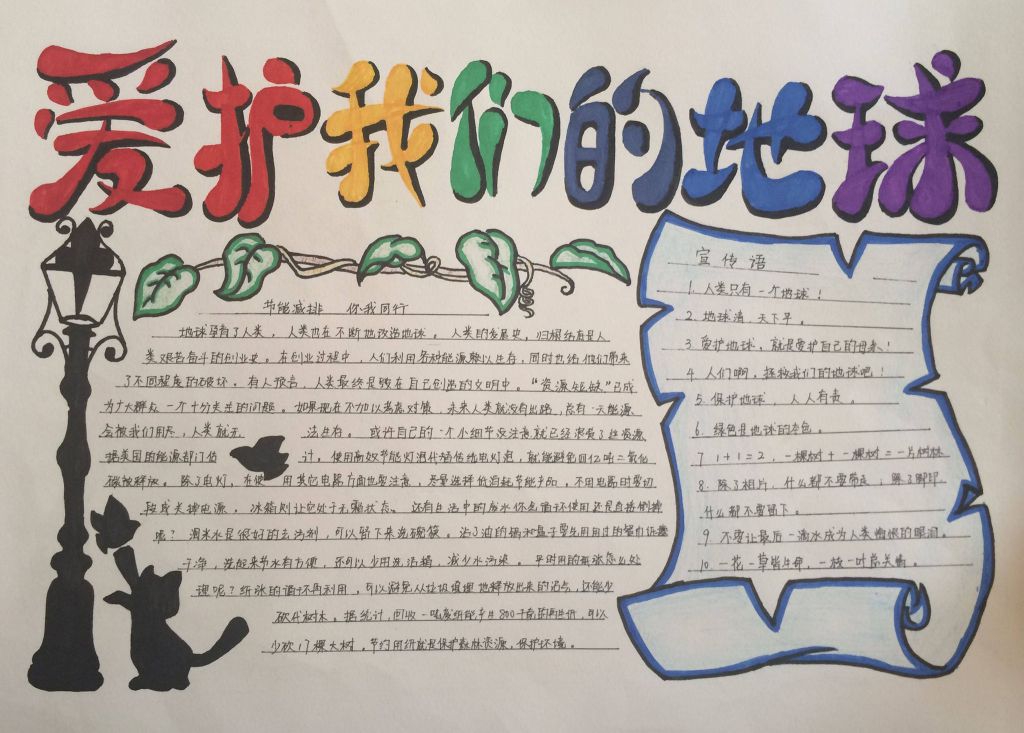 爱护我们的地球
节能减排 你我同行
地球孕育了人类，人类也在不断地改造地球。人类的发展史，归根结底是人
类艰苦奋斗的创业史。在创业过程中，人们利用各种能源赖以生存，同时也给他们带来
了不同程度的破坏。有人预言，人类最终是毁在自己创造的文明中。“资源短缺”已成
为广大群众一个十分关注的问题。如果现在不加以考虑对策，未来人类就没有出路，总有一天能源
会被我们用尽，人类就无法生存。或许自己的一个小细节没注意就已经浪费了些资源
据美国的能源部门估计，使用高效节能灯泡代替传统电灯泡，就能避免四亿吨二氧化
碳被释放。除了电灯，在使用其它电器方面也要注意，尽量选择低消耗节能产品，不用电器时要切
换成关掉电源，冰箱则让它处于无霜状态。还有生活中的废水你是循环使用还是直接倒掉
呢？淘米水是很好的去污剂，可以留下来洗碗筷。沾了油的锅和盘子要先用用过的餐巾纸擦
干净，洗起来节水有方便，还可以少用洗洁精，减少水污染。平时用的纸张怎么处
理呢？纸张的循环再利用，可以避免从垃圾填埋地释放出来的沼气，还能少
砍伐树林。据统计，回收一吨废纸能产生800千克的再生纸，可以
少砍17棵大树。节约用纸就是保护森林资源，保护环境。
宣传语
1. 人类只有一个地球！
2. 地球清，天下平。
3. 爱护地球，就是爱护自己的母亲！
4. 人们啊，拯救我们的地球吧！
5. 保护地球，人人有责。
6. 绿色是地球的本色。
7 1+1=2，一棵树+一棵树=一片树林
8. 除了相片，什么都不要带走；除了脚印，
什么都不要留下。
9 不要让最后一滴水成为人类悔恨的眼泪。
10. 一花一草皆生命，一枝一叶总关情。